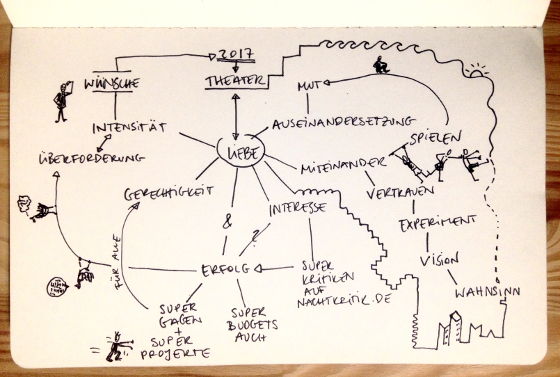 2017
THEATER
WÜNSCHE
MUT
INTENSITÄT
AUSEINANDERSETZUNG
SPIELEN
ÜBERFORDERUNG
LIEBE
MITEINANDER
GERECHTIGKEIT
VERTRAUEN
INTERESSE
&
EXPERIMENT
?
FÜR ALLE
VISION
ERFOLG
SUPER
KRITIKEN
AUF
NACHTKRITIK.DE
WAHNSINN
SUPER
GAGEN
+
SUPER
PROJEKTE
SUPER
BUDGETS
AUCH
=